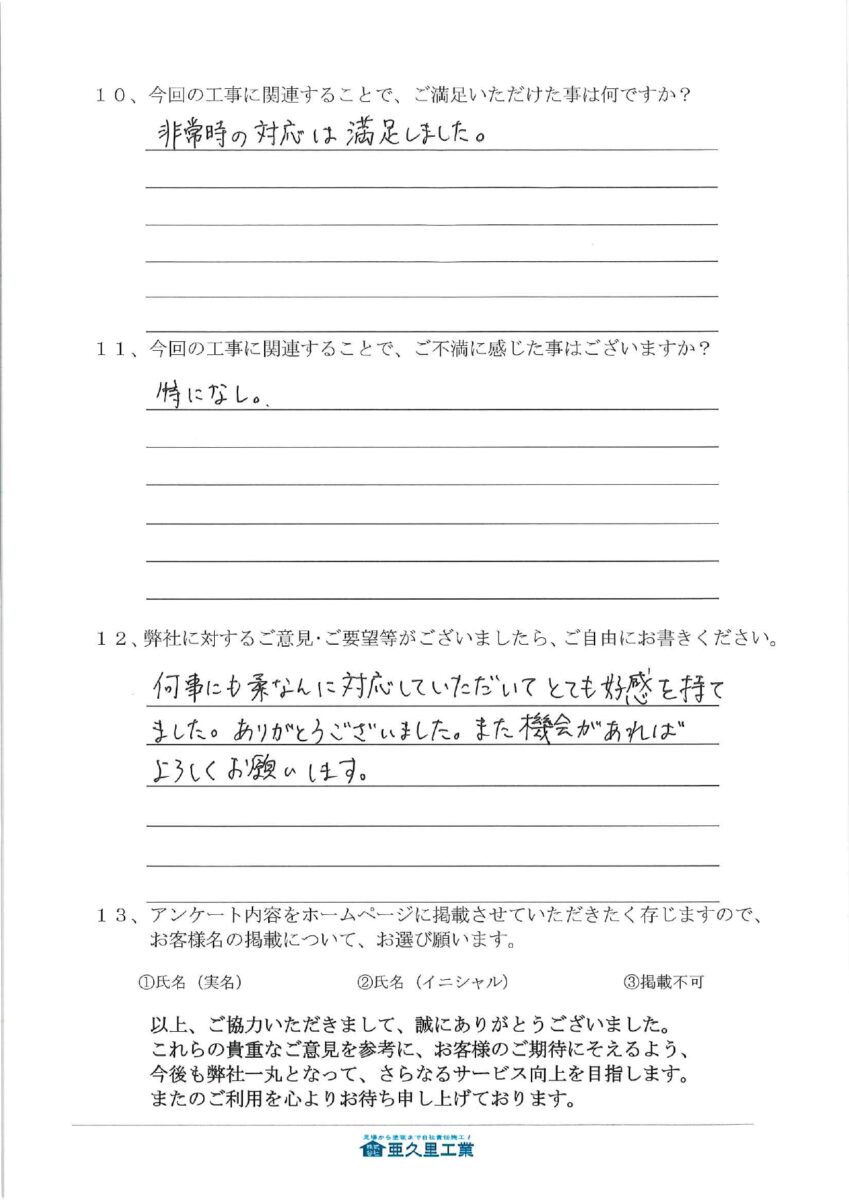 １０、今回の工事に関連することで、ご満足いただけた事は何ですか？
非常時の対応は満足しました。
１１、今回の工事に関連することで、ご不満に感じた事はございますか？
特になし。
１２、弊社に対するご意見・ご要望等がございましたら、ご自由にお書きください。
何事にも柔なんに対応していただいてとても好感を持て
ました。ありがとうございました。また機会があれば
よろしくお願いします。
１３、アンケート内容をホームページに掲載させていただきたく存じますので、
お客様名の掲載について、お選び願います。
①氏名（実名） ②氏名（イニシャル） ③掲載不可
以上、ご協力いただきまして、誠にありがとうございました。
これらの貴重なご意見を参考に、お客様のご期待にそえるよう、
今後も弊社一丸となって、さらなるサービス向上を目指します。
またのご利用を心よりお待ち申し上げております。
足場から塗装まで自社責任施工！
株式会社 亜久里工業